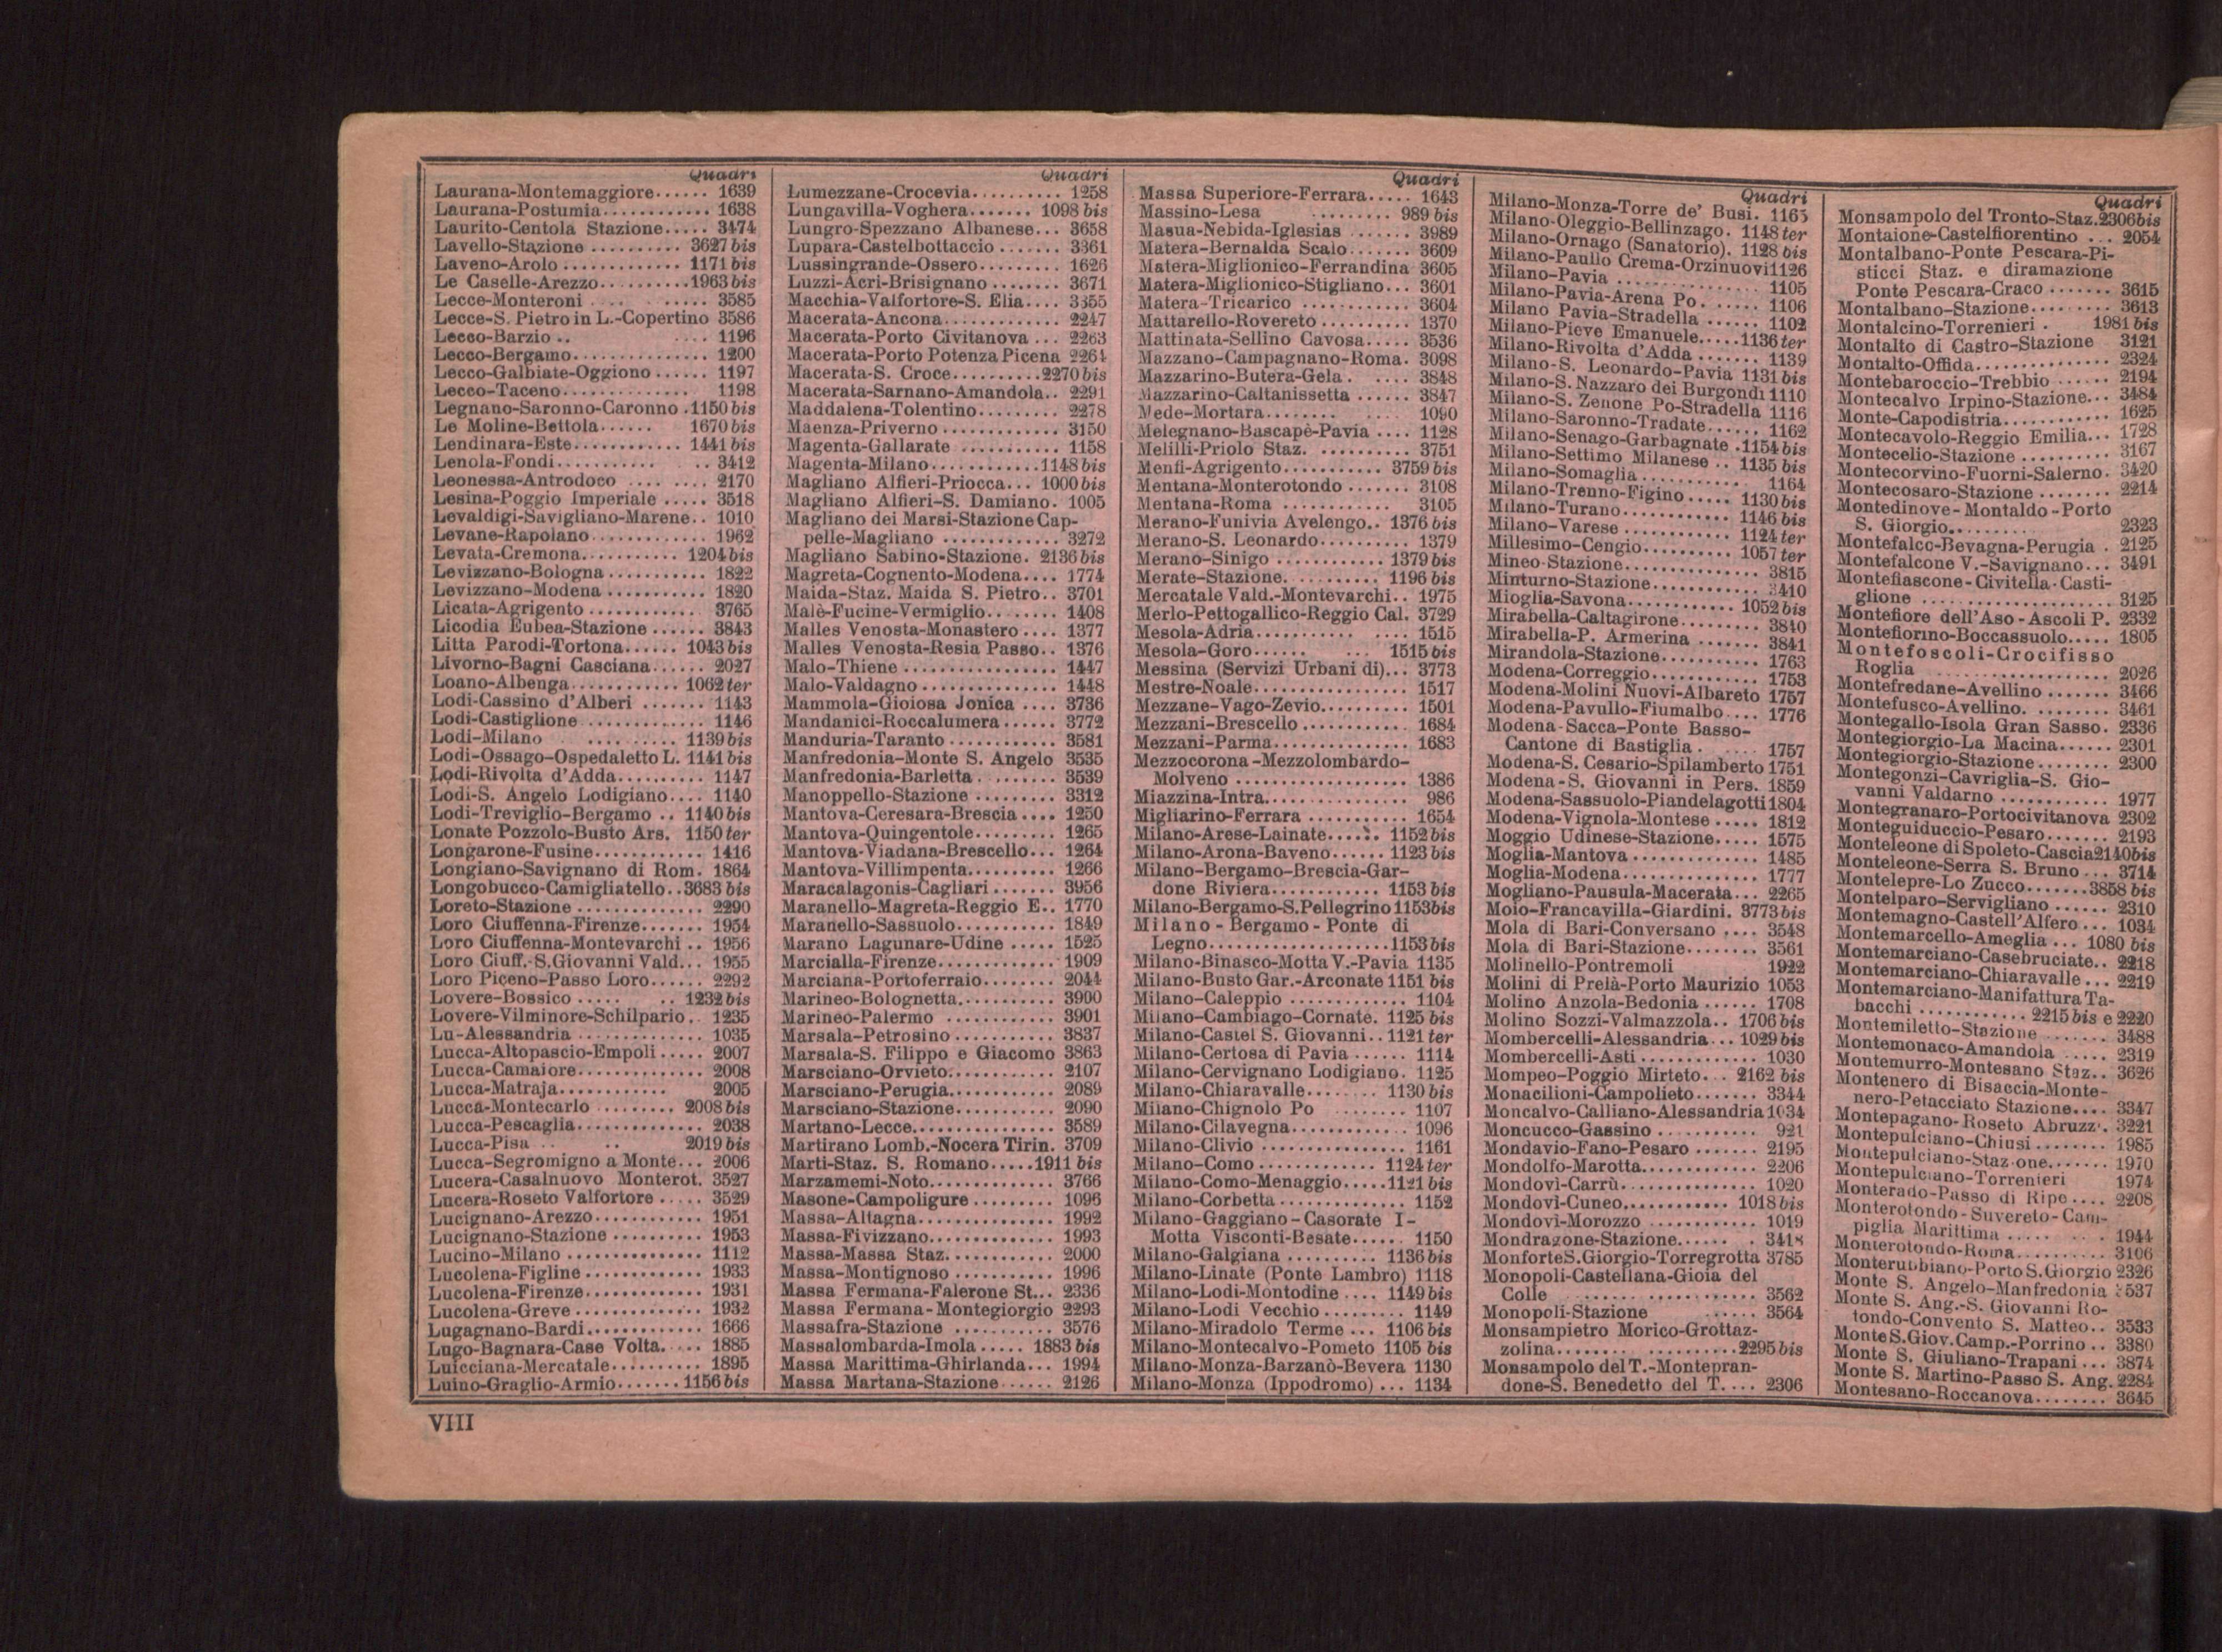 Quadri
Laurana-Montemaggiore...... 1639
Laurana-Postumia............ 1638
Laurito-Centola Stazione..... 3474
Lavello-Stazione .......... 3627 bis
Laveno-Arolo ............. 1171 bis
Le Caselle-Arezzo..........1963 bis
Lecce-Monteroni .... ..... 3585
Lecce-S. Pietro in L.-Copertino 3586
Lecco-Barzio .. .... 1196
Lecco-Bergamo.............. 1200
Lecco-Galbiate-Oggiono ...... 1197
Lecco-Taceno.............. 1198
Legnano-Saronno-Caronno .1150 bis
Le Moline-Bettola...... 1670 bis
Lendinara-Este............ 1441 bis
Lenola-Fondi........... .. 3412
Leonessa-Antrodoco .... .... 2170
Lesina-Poggio Imperiale ..... 3518
Levaldigi-Savigliano-Marene.. 1010
Levane-Rapolano............. 1962
Levata-Cremona.......... 1204 bis
Levizzano-Bologna ........... 1822
Levizzano-Modena ........... 1820
Licata-Agrigento ............ 3765
Licodia Eubea-Stazione ...... 3843
Litta Parodi-Tortona...... 1043 bis
Livorno-Bagni Casciana...... 2027
Loano-Albenga............ 1062 ter
Lodi-Cassino d'Alberi ....... 1143
Lodi-Castiglione ............. 1146
Lodi-Milano .... ..... 1139 bis
Lodi-Ossago-Ospedaletto L. 1141 bis
Lodi-Rivolta d'Adda.......... 1147
Lodi-S. Angelo Lodigiano.... 1140
Lodi-Treviglio-Bergamo .. 1140 bis
Lonate Pozzolo-Busto Ars. 1150 ter
Longarone-Fusine............ 1416
Longiano-Savignano di Rom. 1864
Longobucco-Camigliatello..3683 bis
Loreto-Stazione ............. 2290
Loro Ciuffenna-Firenze....... 1954
Loro Ciuffenna-Montevarchi .. 1956
Loro Ciuff.-S.Giovanni Vald... 1955
Loro Piceno-Passo Loro...... 2292
Lovere-Bossico ..... .. 1232 bis
Lovere-Vilminore-Schilpario.. 1235
Lu-Alessandria .............. 1035
Lucca-Altopascio-Empoli ..... 2007
Lucca-Camaiore.............. 2008
Lucca-Matraja........... 2005
Lucca-Montecarlo ......... 2008 bis
Lucca-Pescaglia.............. 2038
Lucca-Pisa .. .. 2019 bis
Lucca-Segromigno a Monte... 2006
Lucera-Casalnuovo Monterot. 3527
Lucera-Roseto Valfortore ..... 3529
Lucignano-Arezzo............ 1951
Lucignano-Stazione .......... 1953
Lucino-Milano .............. 1112
Lucolena-Figline ............. 1933
Lucolena-Firenze............. 1931
Lucolena-Greve .............. 1932
Lugagnano-Bardi............. 1666
Lugo-Bagnara-Case Volta..... 1885
Luicciana-Mercatale.......... 1895
Luino-Graglio-Armio.......1156 bis
Quadri
Lumezzane-Crocevia.......... 1258
Lungavilla-Voghera....... 1098 bis
Lungro-Spezzano Albanese... 3658
Lupara-Castelbottaccio ....... 3361
Lussingrande-Ossero......... 1626
Luzzi-Acri-Brisignano ........ 3671
Macchia-Valfortore-S. Elia.... 3355
Macerata-Ancona............. 2247
Macerata-Porto Civitanova ... 2263
Macerata-Porto Potenza Picena 2264
Macerata-S. Croce..........2270 bis
Macerata-Sarnano-Amandola.. 2291
Maddalena-Tolentino......... 2278
Maenza-Priverno ............. 3150
Magenta-Gallarate ........... 1158
Magenta-Milano............1148 bis
Magliano Alfieri-Priocca... 1000 bis
Magliano Alfieri-S. Damiano. 1005
Magliano dei Marsi-Stazione Cap-
pelle-Magliano ............. 3272
Magliano Sabino-Stazione. 2136 bis
Magreta-Cognento-Modena.... 1774
Maida-Staz. Maida S. Pietro.. 3701
Malè-Fucine-Vermiglio........ 1408
Malles Venosta-Monastero .... 1377
Malles Venosta-Resia Passo.. 1376
Malo-Thiene ................. 1447
Malo-Valdagno ............... 1448
Mammola-Gioiosa Jonica .... 3736
Mandanici-Roccalumera ...... 3772
Manduria-Taranto ............ 3581
Manfredonia-Monte S. Angelo 3535
Manfredonia-Barletta ........ 3539
Manoppello-Stazione ......... 3312
Mantova-Ceresara-Brescia .... 1250
Mantova-Quingentole......... 1265
Mantova-Viadana-Brescello... 1264
Mantova-Villimpenta.......... 1266
Maracalagonis-Cagliari ....... 3956
Maranello-Magreta-Reggio E.. 1770
Maranello-Sassuolo........... 1849
Marano Lagunare-Udine ..... 1525
Marcialla-Firenze............. 1909
Marciana-Portoferraio........ 2044
Marineo-Bolognetta........... 3900
Marineo-Palermo ............ 3901
Marsala-Petrosino ............ 3837
Marsala-S. Filippo e Giacomo 3863
Marsciano-Orvieto............ 2107
Marsciano-Perugia............ 2089
Marsciano-Stazione........... 2090
Martano-Lecce............... 3589
Martirano Lomb.-Nocera Tirin. 3709
Marti-Staz. S. Romano.....1911 bis
Marzamemi-Noto............. 3766
Masone-Campoligure ......... 1096
Massa-Altagna............... 1992
Massa-Fivizzano.............. 1993
Massa-Massa Staz............ 2000
Massa-Montignoso ........... 1996
Massa Fermana-Falerone St... 2336
Massa Fermana-Montegiorgio 2293
Massafra-Stazione ........... 3576
Massalombarda-Imola ..... 1883 bis
Massa Marittima-Ghirlanda... 1994
Massa Martana-Stazione...... 2126
Quadri
Massa Superiore-Ferrara..... 1643
Massino-Lesa ......... 989 bis
Masua-Nebida-Iglesias ....... 3989
Matera-Bernalda Scalo....... 3609
Matera-Miglionico-Ferrandina 3605
Matera-Miglionico-Stigliano... 3601
Matera-Tricarico ............ 3604
Mattarello-Rovereto .......... 1370
Mattinata-Sellino Cavosa..... 3536
Mazzano-Campagnano-Roma. 3098
Mazzarino-Butera-Gela . .... 3848
Mazzarino-Caltanissetta ...... 3847
Mede-Mortara........ .... 1090
Melegnano-Bascapè-Pavia .... 1128
Melilli-Priolo Staz. .......... 3751
Menfi-Agrigento........... 3759 bis
Mentana-Monterotondo ....... 3108
Mentana-Roma ............ 3105
Merano-Funivia Avelengo.. 1376 bis
Merano-S. Leonardo.......... 1379
Merano-Sinigo ............ 1379 bis
Merate-Stazione........... 1196 bis
Mercatale Vald.-Montevarchi.. 1975
Merlo-Pettogallico-Reggio Cal. 3729
Mesola-Adria........... .... 1515
Mesola-Goro...... ... 1515 bis
Messina (Servizi Urbani di)... 3773
Mestre-Noale................. 1517
Mezzane-Vago-Zevio.......... 1501
Mezzani-Brescello ............ 1684
Mezzani-Parma............... 1683
Mezzocorona-Mezzolombardo-
Molveno ................... 1386
Miazzina-Intra................ 986
Migliarino-Ferrara ............ 1654
Milano-Arese-Lainate...... 1152 bis
Milano-Arona-Baveno...... 1123 bis
Milano-Bergamo-Brescia-Gar-
done Riviera............ 1153 bis
Milano-Bergamo-S.Pellegrino 1153bis
Milano-Bergamo-Ponte di
Legno....................1153 bis
Milano-Binasco-Motta V.-Pavia 1135
Milano-Busto Gar.-Arconate 1151 bis
Milano-Caleppio ............. 1104
Milano-Cambiago-Cornate. 1125 bis
Milano-Castel S. Giovanni..1121 ter
Milano-Certosa di Pavia ...... 1114
Milano-Cervignano Lodigiano. 1125
Milano-Chiaravalle........ 1130 bis
Milano-Chignolo Po ........ 1107
Milano-Cilavegna............. 1096
Milano-Clivio ................ 1161
Milano-Como ............. 1124 ter
Milano-Como-Menaggio.....1121 bis
Milano-Corbetta .............. 1152
Milano-Gaggiano-Casorate I-
Motta Visconti-Besate...... 1150
Milano-Galgiana .......... 1136 bis
Milano-Linate (Ponte Lambro) 1118
Milano-Lodi-Montodine .... 1149 bis
Milano-Lodi Vecchio ......... 1149
Milano-Miradolo Terme ... 1106 bis
Milano-Montecalvo-Pometo 1105 bis
Milano-Monza-Barzanò-Bevera 1130
Milano-Monza (Ippodromo) ... 1134
Quadri
Milano-Monza-Torre de' Busi. 1165
Milano-Oleggio-Bellinzago. 1148 ter
Milano-Ornago (Sanatorio). 1128 bis
Milano-Paullo Crema-Orzinuovi1126
Milano-Pavia ................ 1105
Milano-Pavia-Arena Po. ...... 1106
Milano Pavia-Stradella ...... 1102
Milano-Pieve Emanuele.....1136 ter
Milano-Rivolta d'Adda ....... 1139
Milano-S. Leonardo-Pavia 1131 bis
Milano-S. Nazzaro dei Burgondi 1110
Milano-S. Zenone Po-Stradella 1116
Milano-Saronno-Tradate...... 1162
Milano-Senago-Garbagnate .1154 bis
Milano-Settimo Milanese .. 1135 bis
Milano-Somaglia............ 1164
Milano-Trenno-Figino ..... 1130 bis
Milano-Turano............ 1146 bis
Milano-Varese ............ 1124 ter
Millesimo-Cengio.......... 1057 ter
Mineo Stazione............... 3815
Minturno-Stazione............ 3410
Mioglia-Savona............ 1052 bis
Mirabella-Caltagirone......... 3840
Mirabella-P. Armerina ....... 3841
Mirandola-Stazione........... 1763
Modena-Correggio............ 1753
Modena-Molini Nuovi-Albareto 1757
Modena-Pavullo-Fiumalbo.... 1776
Modena-Sacca-Ponte Basso-
Cantone di Bastiglia . .... 1757
Modena-S. Cesario-Spilamberto 1751
Modena-S. Giovanni in Pers. 1859
Modena-Sassuolo-Piandelagotti 1804
Modena-Vignola-Montese ..... 1812
Moggio Udinese-Stazione..... 1575
Moglia-Mantova ............. 1485
Moglia-Modena.............. 1777
Mogliano-Pausula-Macerata... 2265
Moio-Francavilla-Giardini. 3773 bis
Mola di Bari-Conversano .... 3548
Mola di Bari-Stazione........ 3561
Molinello-Pontremoli 1922
Molini di Prelà-Porto Maurizio 1053
Molino Anzola-Bedonia ...... 1708
Molino Sozzi-Valmazzola.. 1706 bis
Mombercelli-Alessandria... 1029 bis
Mombercelli-Asti ............. 1030
Mompeo-Poggio Mirteto... 2162 bis
Monacilioni-Campolieto....... 3344
Moncalvo-Calliano-Alessandria 1034
Moncucco-Gassino ........... 921
Mondavio-Fano-Pesaro ....... 2195
Mondolfo-Marotta............ 2206
Mondovì-Carrù.............. 1020
Mondovì-Cuneo............ 1018 bis
Mondovì-Morozzo ........... 1019
Mondragone-Stazione...... . 3418
Monforte S.Giorgio-Torregrotta 3785
Monopoli-Castellana-Gioia del
Colle .................. 3562
Monopoli-Stazione ...... 3564
Monsampietro Morico-Grottaz-
zolina...................2295 bis
Monsampolo del T.-Montepran-
done-S. Benedetto del T. ... 2306
Quadri
Monsampolo del Tronto-Staz.2306bis
Montaione-Castelfiorentino ... 2054
Montalbano-Ponte Pescara-Pi-
sticci Staz. e diramazione
Ponte Pescara-Craco ....... 3615
Montalbano-Stazione......... 3613
Montalcino-Torrenieri . 1981 bis
Montalto di Castro-Stazione 3121
Montalto-Offida.............. 2324
Montebaroccio-Trebbio ...... 2194
Montecalvo Irpino-Stazione... 3484
Monte-Capodistria............ 1625
Montecavolo-Reggio Emilia... 1728
Montecelio-Stazione .......... 3167
Montecorvino-Fuorni-Salerno. 3420
Montecosaro-Stazione ........ 2214
Montedinove-Montaldo-Porto
S. Giorgio.......... 2323
Montefalco-Bevagna-Perugia . 2125
Montefalcone V.-Savignano... 3491
Montefiascone-Civitella-Casti-
glione ..................... 3125
Montefiore dell'Aso-Ascoli P. 2332
Montefiorino-Boccassuolo..... 1805
Montefoscoli-Crocifisso
Roglia ................. 2026
Montefredane-Avellino ....... 3466
Montefusco-Avellino. ........ 3461
Montegallo-Isola Gran Sasso. 2336
Montegiorgio-La Macina...... 2301
Montegiorgio-Stazione ........ 2300
Montegonzi-Cavriglia-S. Gio-
vanni Valdarno ............ 1977
Montegranaro-Portocivitanova 2302
Monteguiduccio-Pesaro....... 2193
Monteleone di Spoleto-Cascia2140bis
Monteleone-Serra S. Bruno... 3714
Montelepre-Lo Zucco.......3858 bis
Montelparo-Servigliano ...... 2310
Montemagno-Castell'Alfero ... 1034
Montemarcello-Ameglia ... 1080 bis
Montemarciano-Casebruciate.. 2218
Montemarciano-Chiaravalle... 2219
Montemarciano-Manifattura Ta-
bacchi ............ 2215 bis e 2220
Montemiletto-Stazione ....... 3488
Montemonaco-Amandola ..... 2319
Montemurro-Montesano Staz.. 3626
Montenero di Bisaccia-Monte-
nero-Petacciato Stazione.... 3347
Montepagano-Roseto Abruzz.. 3221
Montepulciano-Chiusi ........ 1985
Montepulciano-Stazione....... 1970
Montepulciano-Torrenieri 1974
Monterado-Passo di Ripe.... 2208
Monterotondo-Suvereto-Cam-
piglia Marittima ..... . 1944
Monterotondo-Roma.......... 3106
Monterubbiano-Porto S.Giorgio 2326
Monte S. Angelo-Manfredonia 3537
Monte S. Ang.-S. Giovanni Ro-
tondo-Convento S. Matteo.. 3533
Monte S.Giov.Camp.-Porrino .. 3380
Monte S. Giuliano-Trapani ... 3874
Monte S. Martino-Passo S. Ang. 2284
Montesano-Roccanova........ 3645
VIII